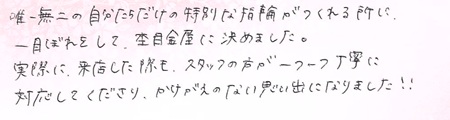 唯一無二の自分たちだけの特別な指輪がつくれる所に、
一目ぼれをして、杢目金屋に決めました。
実際に、来店した際も、スタッフの方が一つ一つ丁寧に
対応してくださり、かけがえのない思い出になりました!!